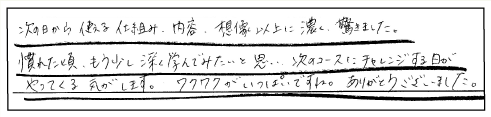 次の日から使える仕組み、内容、想像以上に濃く、驚きました。
慣れた頃、もう少し深く学んでみたいと思い、次のコースにチャレンジする日が
やってくる気がします。ワクワクがいっぱいですね。ありがとうございました。